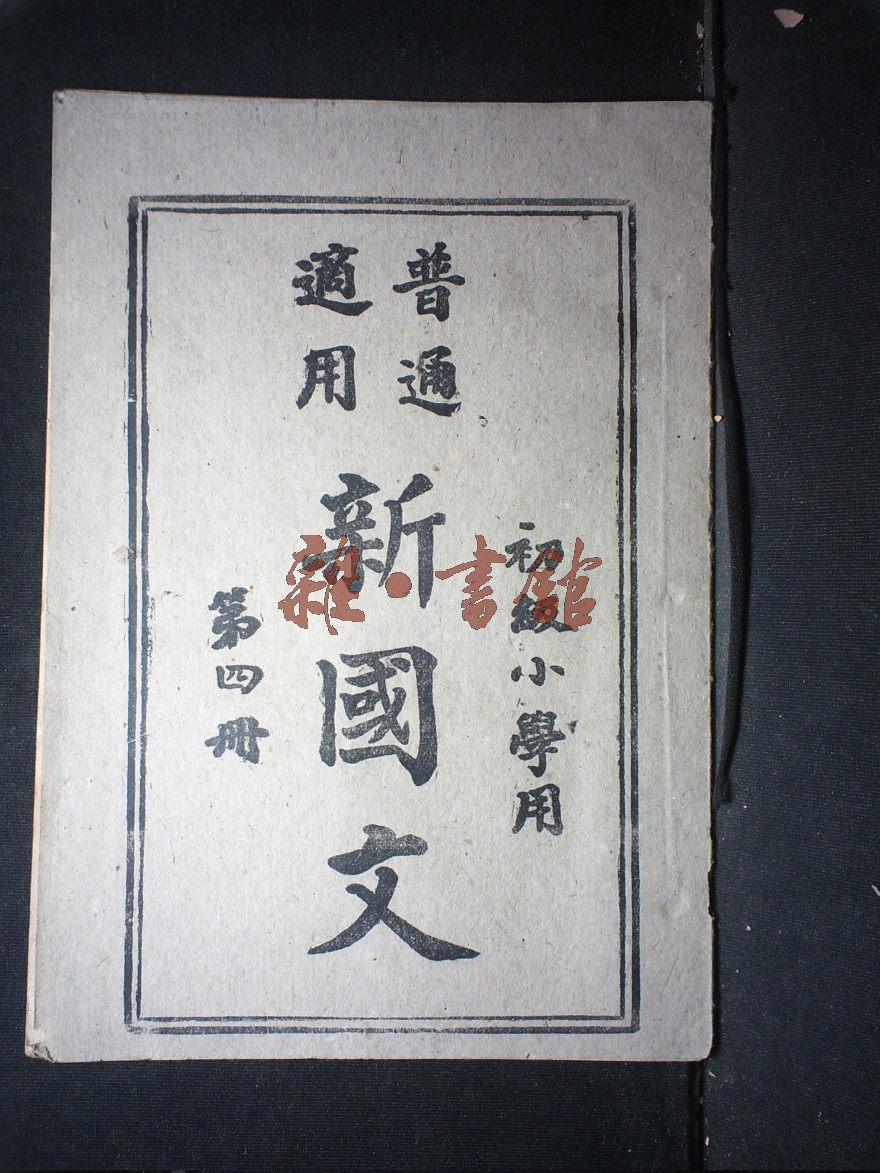 普通
適用
初級小學用
新國文
第四冊
雜·書館